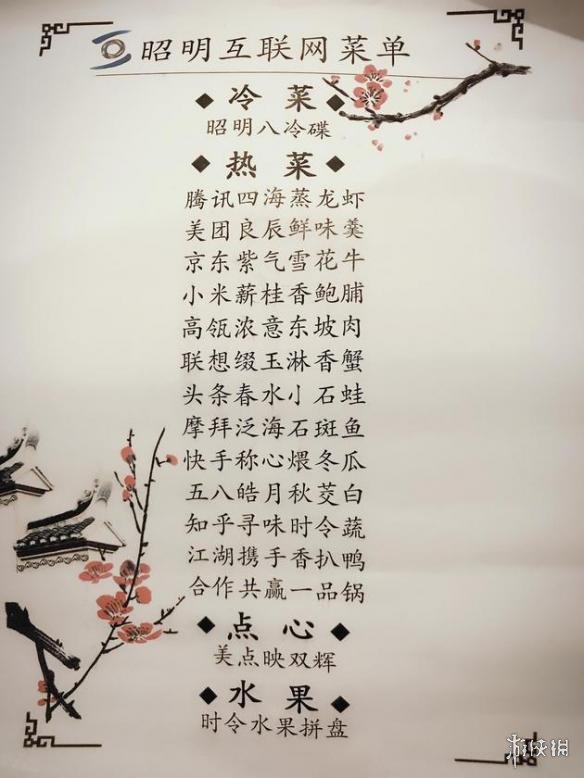 昭明互联网菜单
◆冷菜◆
昭明八冷碟
◆热菜◆
腾讯四海蒸龙虾
美团良辰鲜味羹
京东紫气雪花牛
小米薪桂香鲍脯
高瓴浓意东坡肉
联想缀玉淋香蟹
头条春水小石蛙
摩拜泛海石斑鱼
快手称心煨冬瓜
五八皓月秋茭白
知乎寻味时令蔬
江湖携手香扒鸭
合作共赢一品锅
◆点心◆
美点映双辉
◆水果◆
时令水果拼盘
游侠网